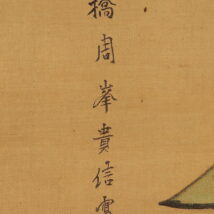 橋周峯貴信寫